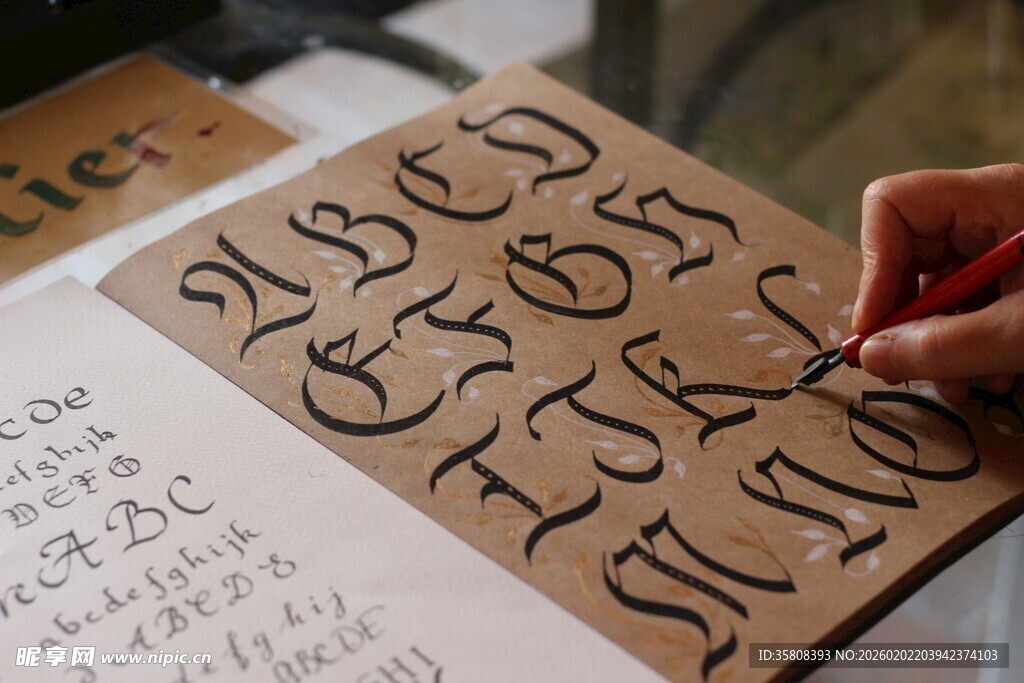 lier
A B C D
E F G H
I J K L
M N O
cDe
efghijk
DEFG
ABC
abcdefghijk
ABCDE
fghij
ABCDE
HI
昵享网 www.nipic.cn
ID:35808393 NO:20260202203942374103